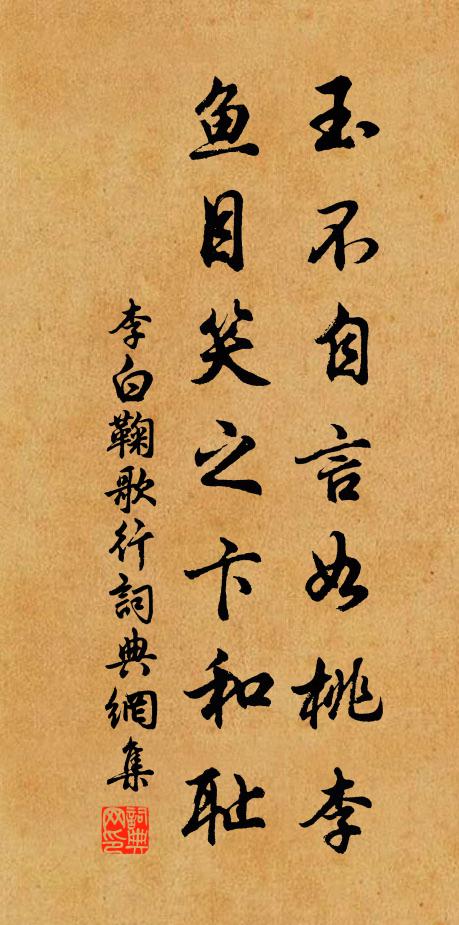 玉不自言如桃李
鱼目笑之卞和耻
李白鞠歌行詞典網集
詞典
网印